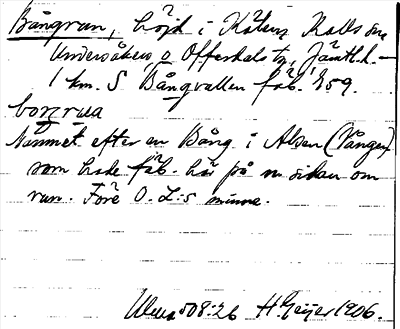 Bångrun, höjd i Kälens Kalls sn
Undersåkers o Offerdals tg, Jämtl. l. —
1 km. S Bångvallen fäb. 859.
bonrua
Namnet efter en Bång i Alsen (Vången)
som hade fäb. här på n. sidan om
run. Före O. L:s minne.
Ulma 508:26 H. Geijer 1906.